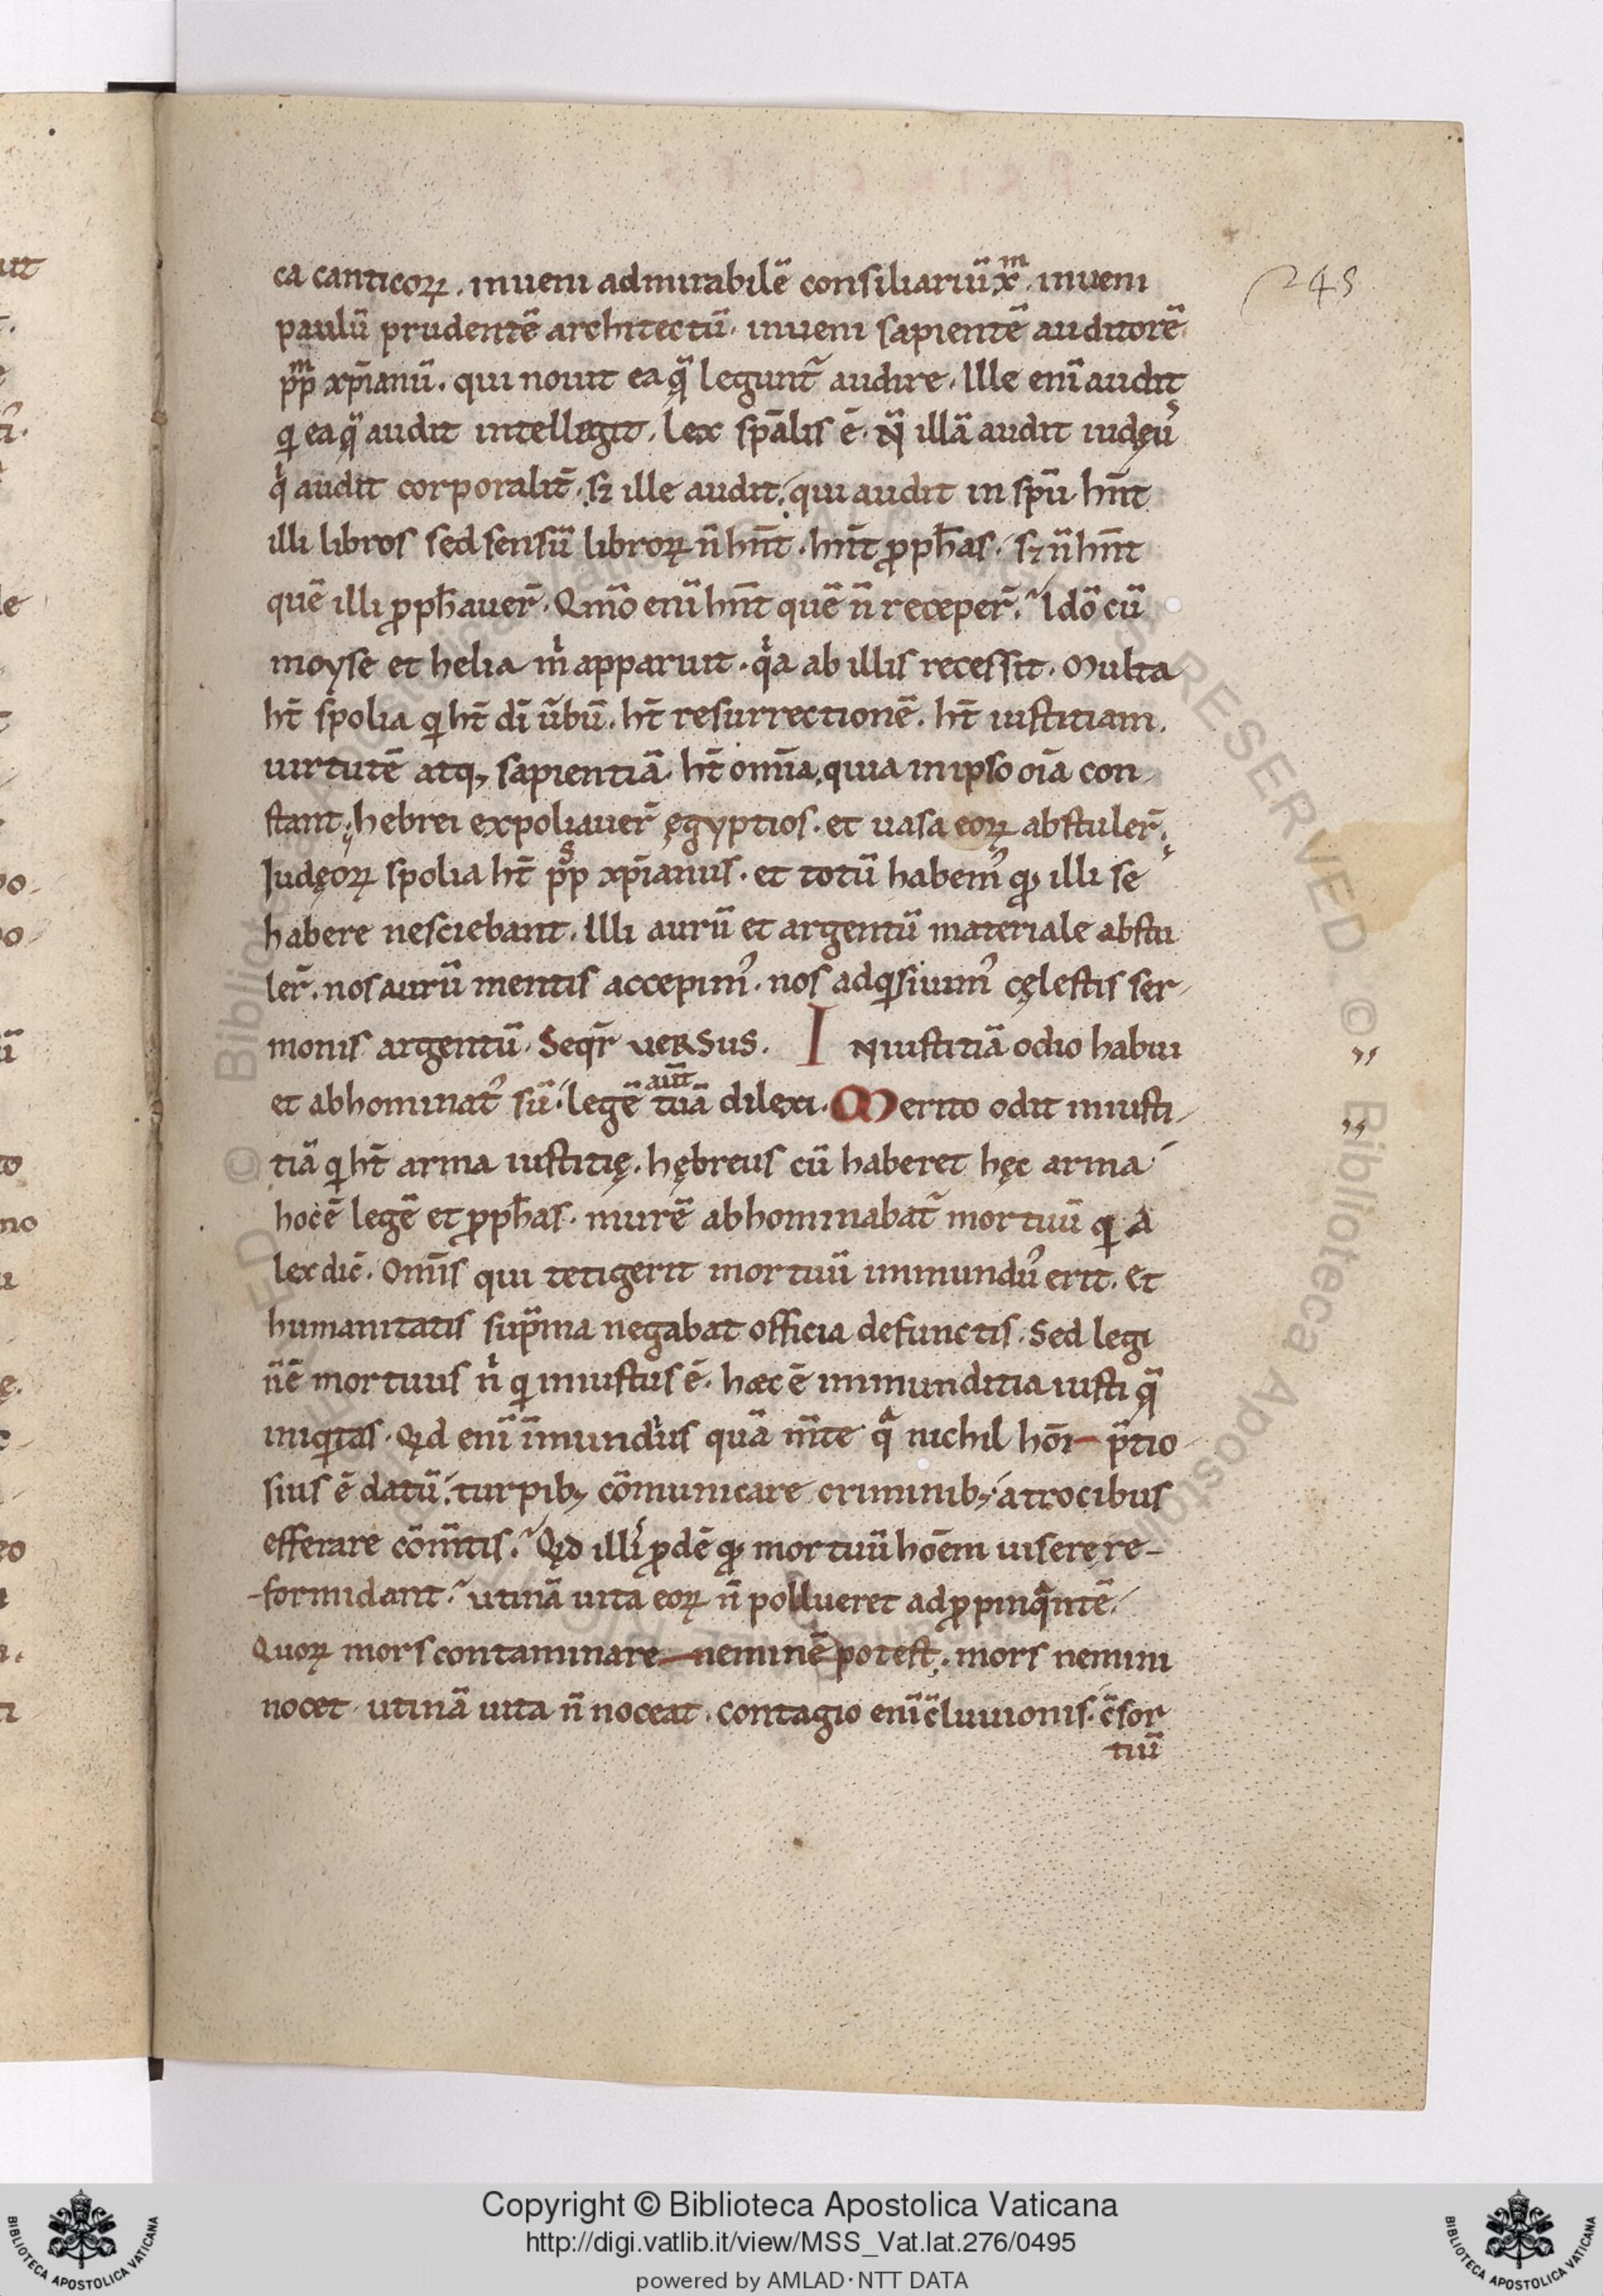 245
ca canticoꝝ. inueni admirabilē consiliariū xᵐ. inueni
paulū prudentē architectū. inueni sapientē auditorē.
pp̄ᵐ xp̄ianū. qui nouit ea q̄ legunt᷑ audire. Ille enī audit
qi ea q̄ audit intellegit. Lex sp̄alis ē. N̄ illā audit iudęuˢ
qͥ audit corporalit̄. sꝫ ille audit, qui audit in sp̄u. hn̄t
illi libros sed sensū libroꝝ n̄ hn̄t. hn̄t ꝓph̄as. sꝫ n̄ hn̄t
quē illi ꝓph̄auer̄. Qm̊o enī hn̄t quē n̄ receper̄. Idō cū
moyse et helia mͥ apparuit. qͥa ab illis recessit. Multa
ht̄ spolia qi ht̄ dī ūbū. ht̄ resurrectionē. ht̄ iustitiam.
uirtutē atqꝫ sapientiā. ht̄ omīa, quia in ipso oīa con-
stant. hebrei expoliauer̄ ęgyptios. et uasa eoꝝ abstuler̄.
Iudęoꝝ spolia ht̄ pp̄ˢ xp̄ianus. et totū habem᾽ qꝫ illi se
habere nesciebant. Illi aurū et argentū materiale abstu
ler̄. nos aurū mentis accepim᾽. nos adqisiuim᾽ cęlestis ser-
monis argentū. Seqr̄ VERSUS. INiustitiā odio habui
et abhominat᾽ sū. legē aūt tuā dilexi. Merito odit iniusti-
tiā qi ht̄ arma iustitię. hębreus cū haberet hęc arma
hoc ē legē et ꝓph̄as. murē abhominabat᷑ mortuū qi a
lex dic̄. Om̄is qui tetigerit mortuū immund᾽ erit. et
humanitatis sup̄ma negabat officia defunctis. Sed legi
n̄ ē mortuus nͥ qi iniustus ē. hæc ē immunditia iusti q̄
iniqitas. Qid enī īmundͥus quā m̄te qͣ nichil hōi p̄tio
sius ē datū. turpibꝫ cōmunicare criminibꝫ, atrocibus
efferare cōm̄tis. Qid illiˢ ꝓdē qꝫ mortuū hoēm uisere re-
-formidant. utinā uita eoꝝ n̄ pollueret adꝓpinqͣntē.
Quoꝝ mors contaminare neminē potest. mors nemini
nocet. utinā uita n̄ noceat. contagio enī c̄luuionis. c̄sor
tiū
Copyright © Biblioteca Apostolica Vaticana
http://digi.vatlib.it/view/MSS_Vat.lat.276/0495
powered by AMLAD·NTT DATA
BIBLIOTECA APOSTOLICA VATICANA
BIBLIOTECA APOSTOLICA VATICANA